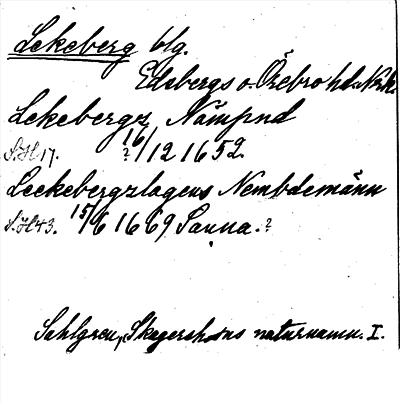 Lekeberg blg.
Edsbergs o. Örebro hd. Nrk.
Lekebergz Nämpnd
S.H 17. 16/12 1652.
?
Leekebergzlagens Nembdemänn
S.H 43. 15/6 1669 Sanna.?
Sahlgren, Skagershults naturnamn. I.